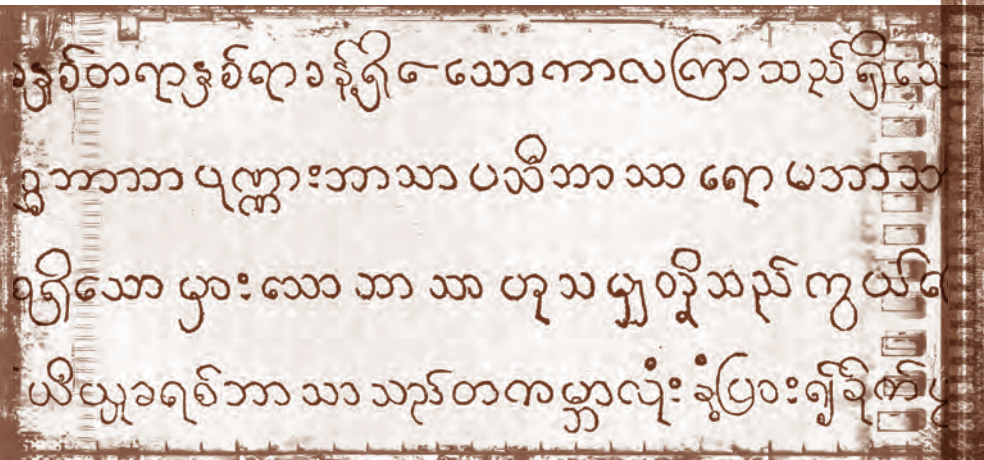 နှစ်တရာနှစ်ရာခန့်ရှိသောကာလကြာသည်ရှိသော
ပုဏ္ဏားဘာသာ ပသီဘာသာ ရောမဘာသာ
ရှိသော မှားသောဘာသာ ဟူသမျှတို့သည် ကွယ်
ခရစ်ဘာသာသည် တကမ္ဘာလုံး နှံ့ပြား၍